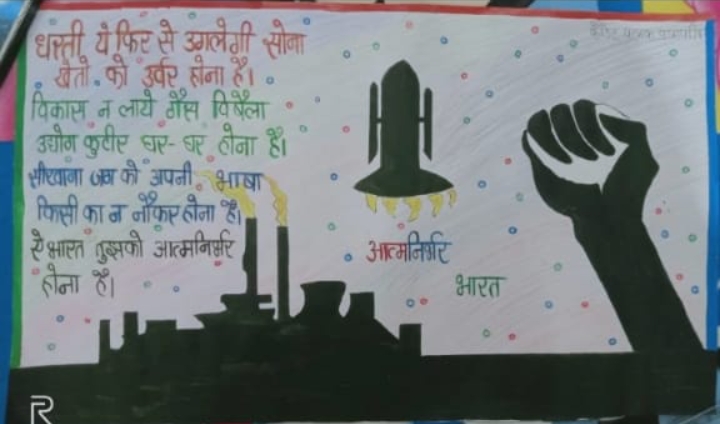 धरती ये फिर से उगलेगी सोना
खेतो को उर्वर होना है।
विकास न लाये गैस विषैला
उद्योग कुटीर घर-घर होना है।
सीखाना जग को अपनी भाषा
किसी का न नौकर होना है।
ऐ भारत तुझको आत्मनिर्भर
होना है।
आत्मनिर्भर
भारत
R